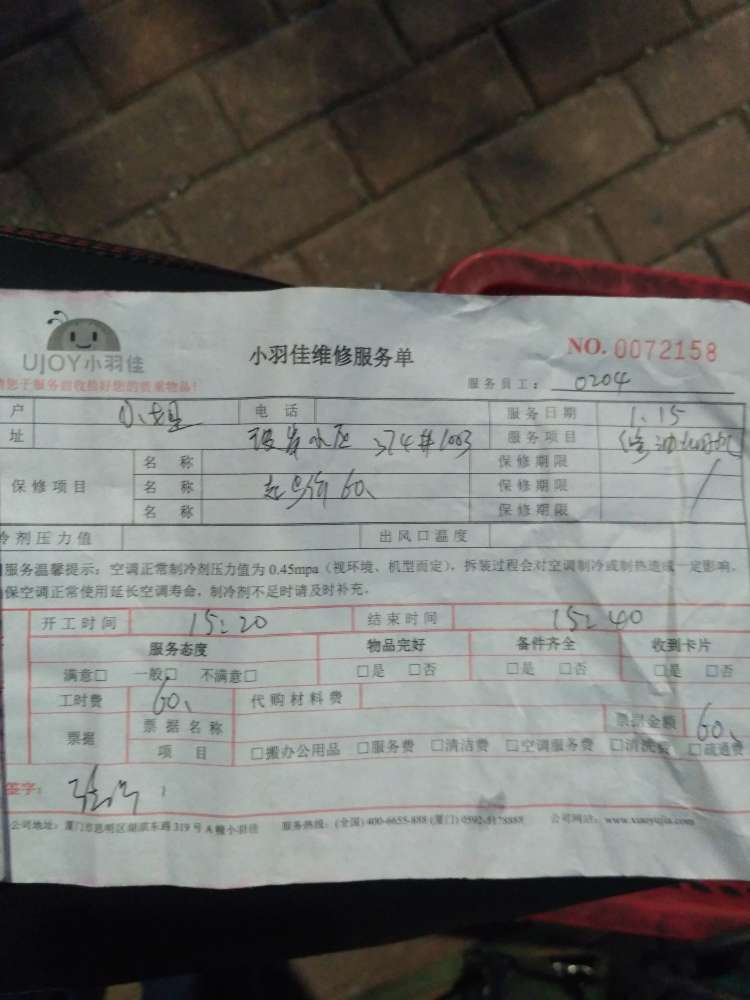 UJOY小羽佳
小羽佳维修服务单
NO. 0072158
服务员工： 0204
户 电 话 服务日期 1.15
址 374#1003 服务项目
保修项目 名 称 保修期限
名 称 起步价 60、 保修期限
名 称 保修期限
冷剂压力值 出风口温度
服务温馨提示：空调正常制冷剂压力值为 0.45mpa（视环境、机型而定），拆装过程会对空调制冷或制热造成一定影响。
保空调正常使用延长空调寿命，制冷剂不足时请及时补充。
开工时间 15:20 结束时间 15:40
服务态度 物品完好 备件齐全 收到卡片
满意□ 一般□ 不满意□ □是 □否 □是 □否 □是 □否
工时费 60、 代购材料费
票据 票据名称 票据金额 60、
项 目 □搬办公用品 □服务费 □清洁费 □空调服务费 □清洗费 □疏通费
签字：
公司地址：厦门市思明区湖滨东路 319 号 A 幢小羽佳 服务热线：(全国) 400-6655-888 (厦门) 0592-5178888 公司网站：www.xiaoyujia.com